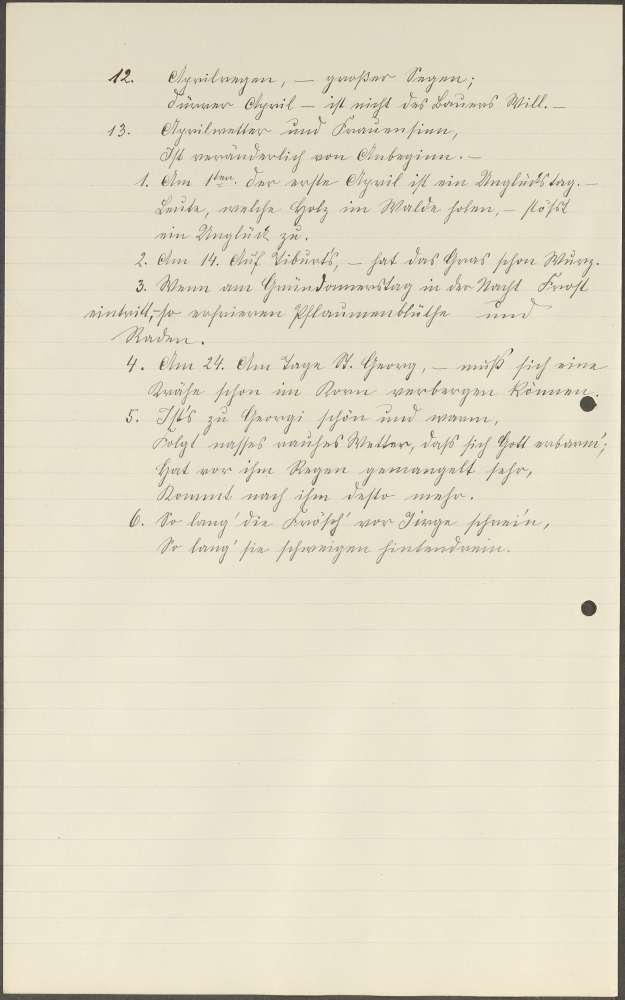 12. Aprilregen, — großer Segen;
Dürrer April — ist nicht des Bauers Will. —
13. Aprilwetter und Frauensinn,
Ist veränderlich von Anbeginn. —
1. Am 1ten. Der erste April ist ein Unglückstag. —
Leute, welche Holz im Walde holen, — stößt
ein Unglück zu.
2. Am 14. Auf Tiburts, — hat das Gras schon Wurz.
3. Wenn am Gründonnerstag in der Nacht Frost
eintritt, — so erfrieren Pflaumenblüthe und
Raden.
4. Am 24. Am Tage St. Georg, — muß sich eine
Krähe schon im Korn verbergen können.
5. Ist's zu Georgi schön und warm,
Folgt nasses rauhes Wetter, daß sich Gott erbarm';
Hat vor ihm Regen gemangelt sehr,
Kommt nach ihm desto mehr.
6. So lang' die Frösch' vor Jirge schrei'n,
So lang' sie schweigen hintendrein.